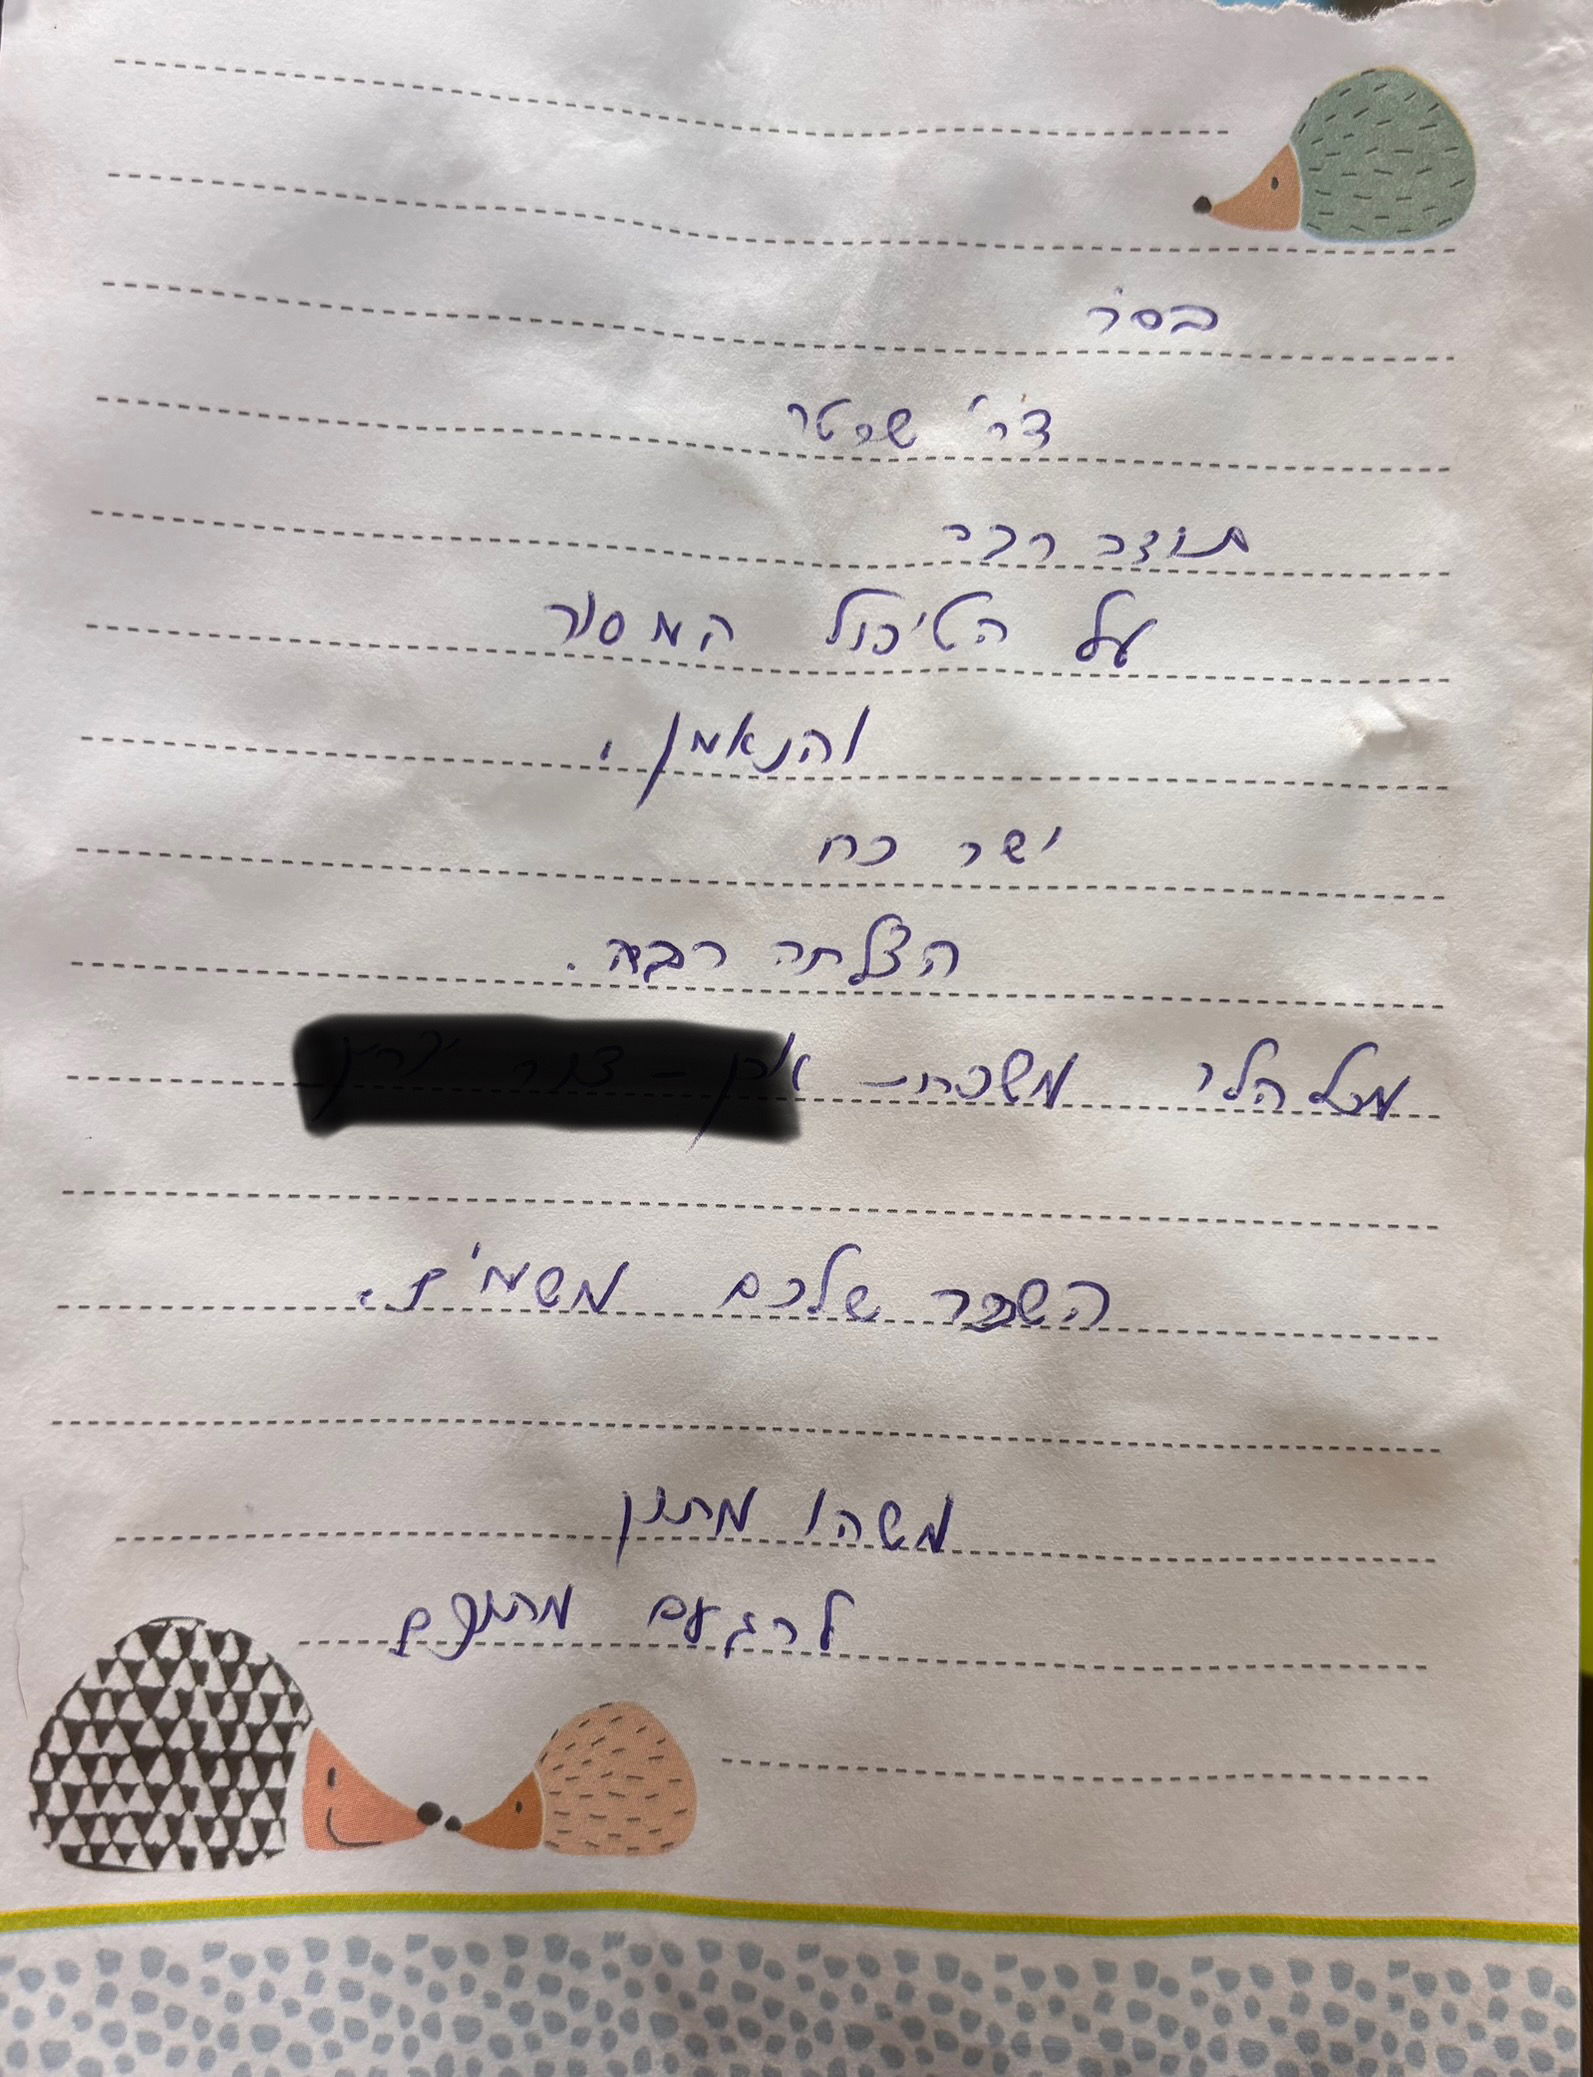 בס"ד
ד"ר שכטר
תודה רבה
על הטיפול המסור
והנאמן,
ישר כח
הצלחה רבה.
מכל הלב משפחת
השפה שלכם משמים.
משהו מתוק
לרגעים מתוקים